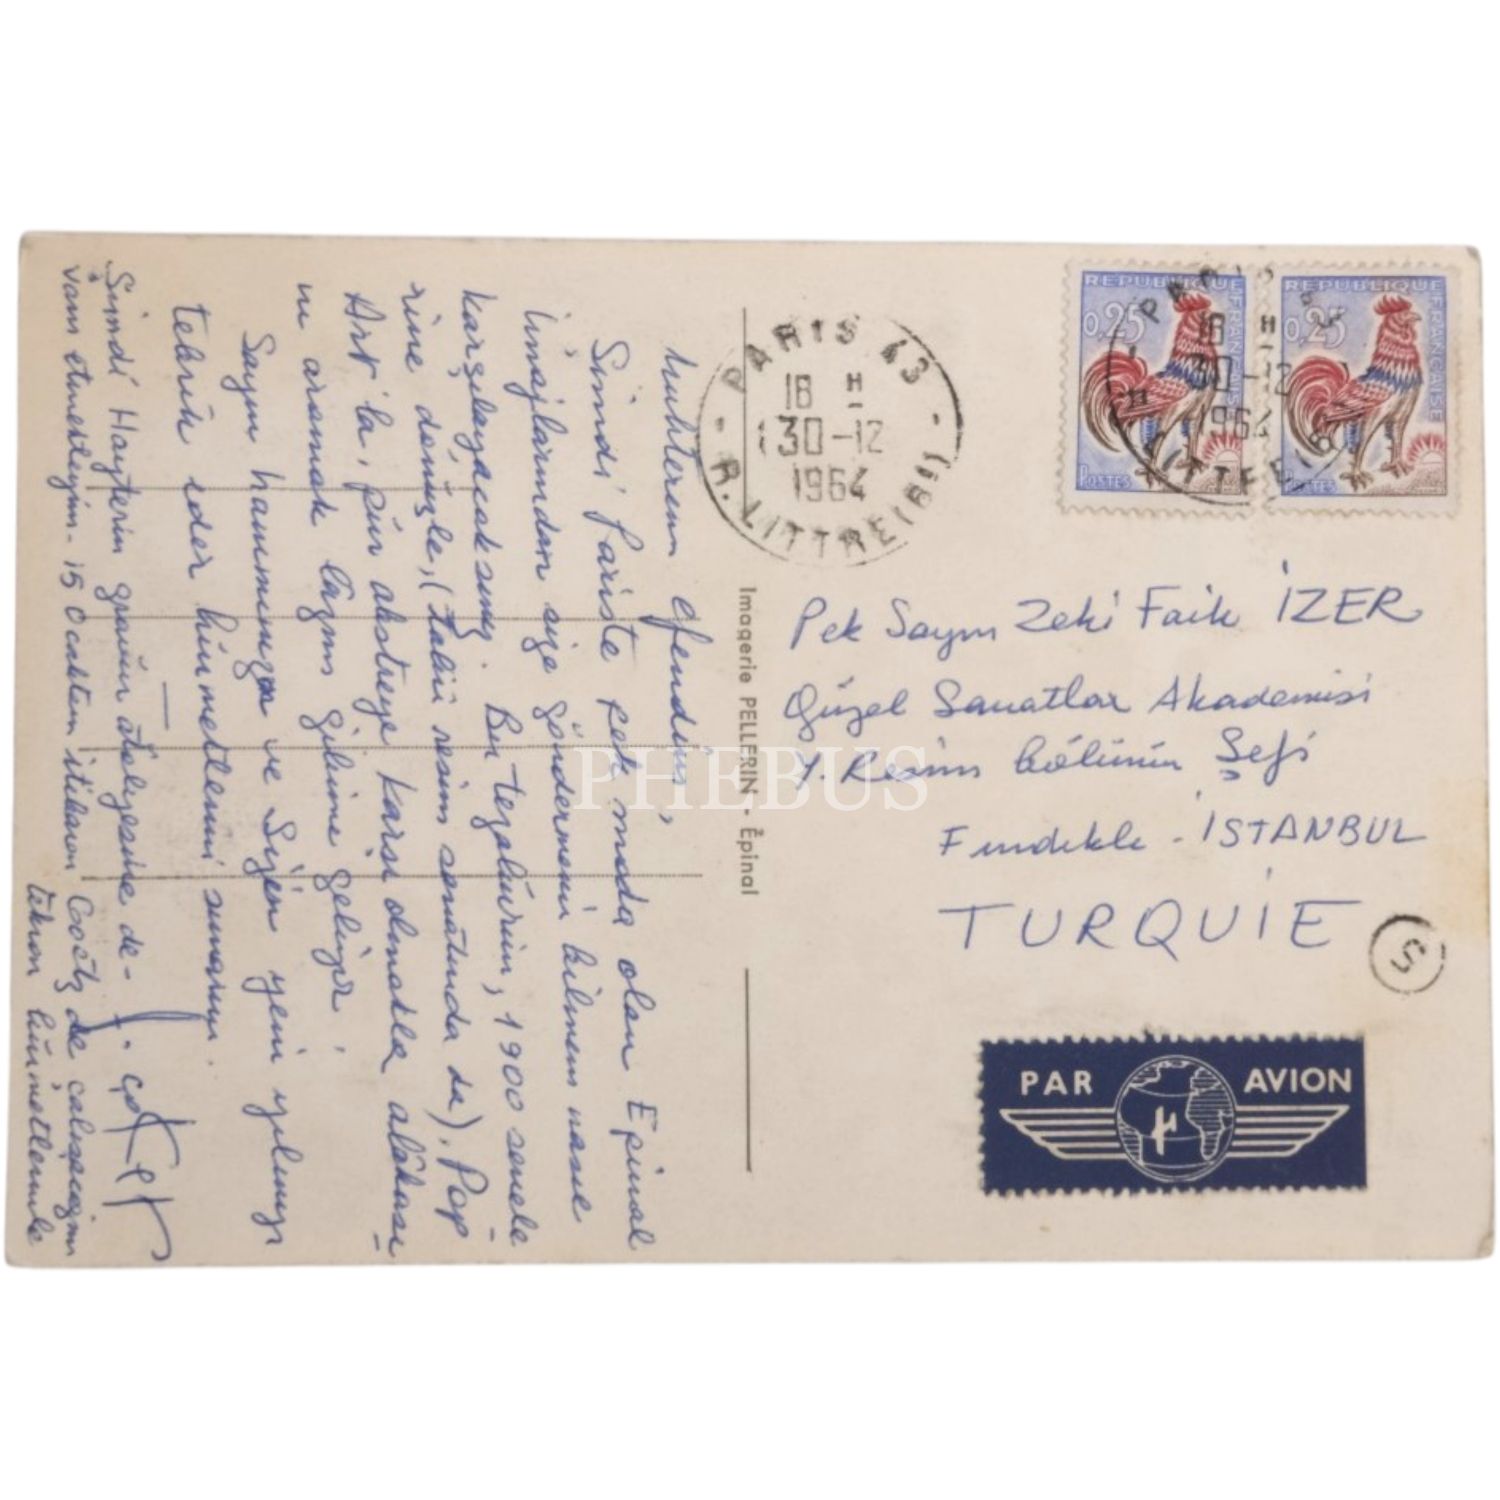 Muhterem Efendim,
Şimdi Pariste pek moda olan Epinal
imajlarından size göndermemi bilmem nasıl
karşılayacaksınız. Bu tezahürün, 1900 senele-
rine dönüşle, (tabii resim sanatında da), Pop
Art'la, pür abstreye karşı olmakla alâkası
nı aramak lâzım gibime geliyor.
Sayın hanımınızın ve Sizin yeni yılınızı
tebrik eder hürmetlerimi sunarım.
Şimdi Hayterin gravür atelyesine de-
vam etmekteyim. 15 Ocaktan itibaren Goetz de çalışacağım
tekrar hürmetlerimle
PARIS 43
18 H
30-12
1964
R. LITTRE (6E)
REPUBLIQUE FRANÇAISE
0,25
POSTES
REPUBLIQUE FRANÇAISE
0,25
POSTES
PARIS
18 H
30-12
1964
LITTRE
Imagerie PELLERIN - Épinal
Pek Sayın Zeki Faik İZER
Güzel Sanatlar Akademisi
Y. Resim bölümü Şefi
Fındıklı - İSTANBUL
TURQUIE
S
PAR AVION
PHEBUS